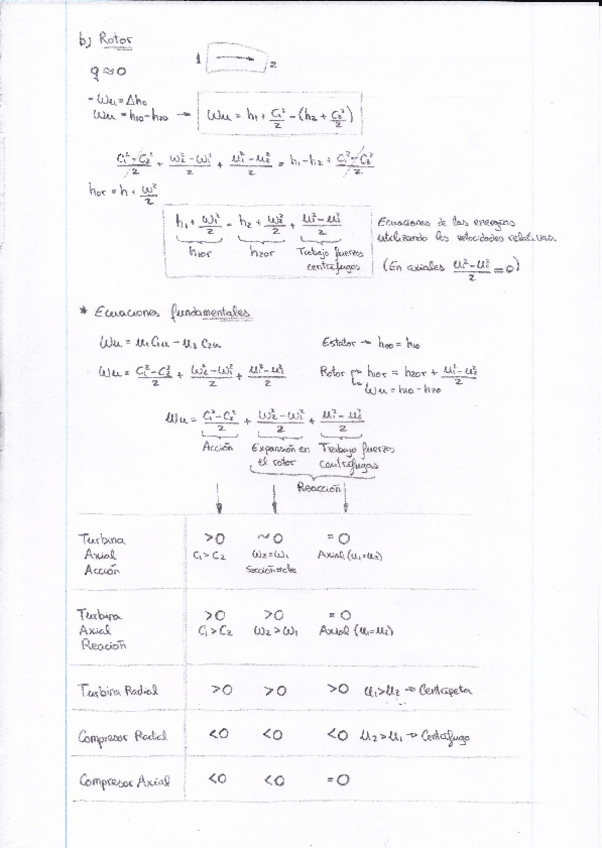 b) Rotor
1 → 2
q ≈ 0
- Wu = Δh₀
Wu = h₁₀ - h₂₀ → Wu = h₁ + C₁²/2 - (h₂ + C₂²/2)
C₁² - C₂²/2 + W₂² - W₁²/2 + U₁² - U₂²/2 = h₁ - h₂ + C₁² - C₂²/2
h₀r = h + W²/2
h₁ + W₁²/2 = h₂ + W₂²/2 + U₁² - U₂²/2
h₁₀r h₂₀r Trabajo fuerzas
centrífugas
Ecuaciones de las energías
utilizando las velocidades relativas.
(En axiales U₁² - U₂²/2 = 0)
* Ecuaciones fundamentales
Wu = U₁C₁u - U₂C₂u
Estator → h₀₀ = h₁₀
Wu = C₁² - C₂²/2 + W₂² - W₁²/2 + U₁² - U₂²/2
Rotor → h₁₀r = h₂₀r + U₁² - U₂²/2
→ Wu = h₁₀ - h₂₀
Wu = C₁² - C₂²/2 + W₂² - W₁²/2 + U₁² - U₂²/2
Acción Expansión en Trabajo fuerzas
el rotor centrífugas
Reacción
Turbina >0 ~0 =0
Axial C₁>C₂ W₂=W₁ Axial (U₁=U₂)
Acción Sección=cte
Turbina >0 >0 =0
Axial C₁>C₂ W₂>W₁ Axial (U₁=U₂)
Reación
Turbina Radial >0 >0 >0 U₁>U₂ → Centrípeta
Compresor Radial <0 <0 <0 U₂>U₁ → Centrífugo
Compresor Axial <0 <0 =0